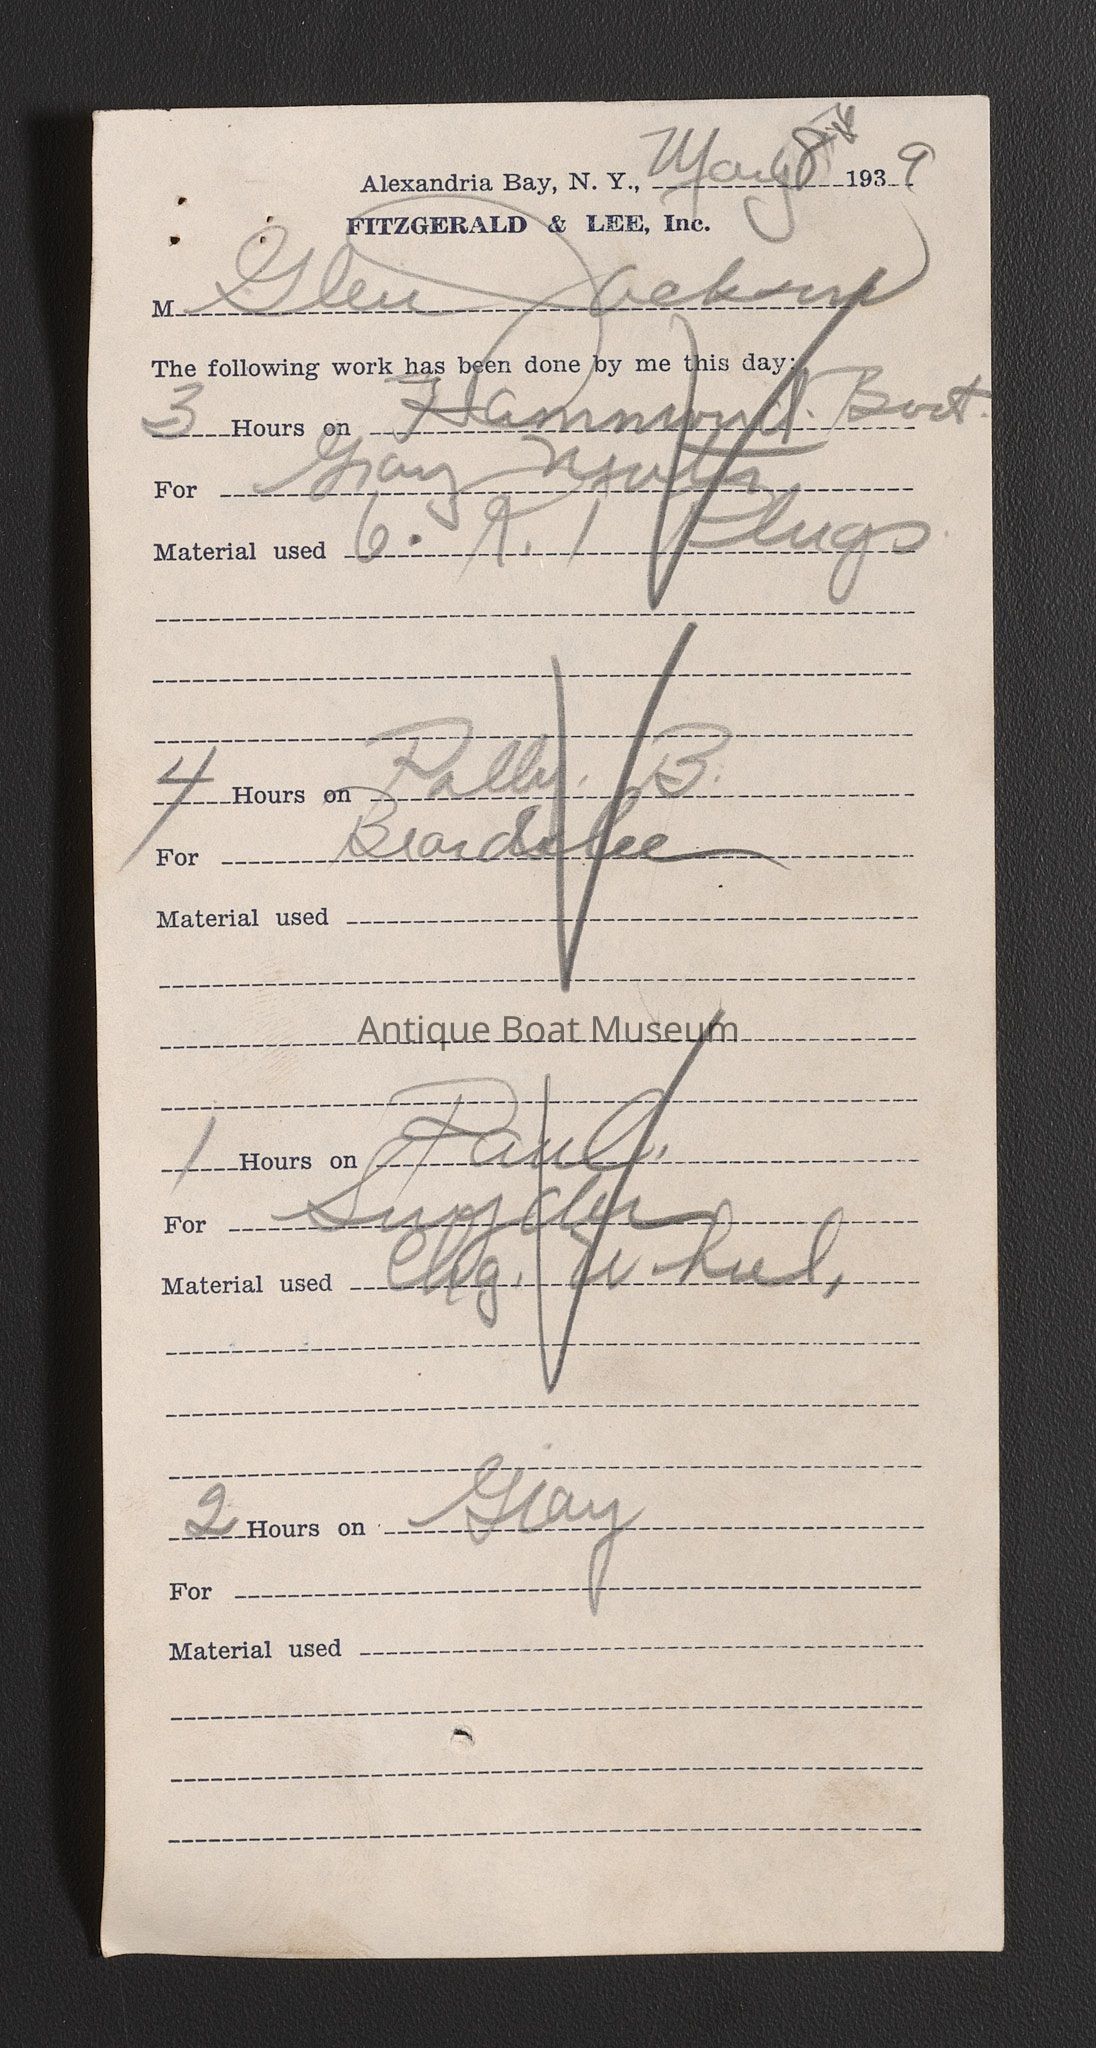 Alexandria Bay, N. Y., May 8th 1939
FITZGERALD & LEE, Inc.
M Glen Jackson
The following work has been done by me this day:
3 Hours on Hammond. Boat.
For Gray Motor
Material used 6. A. 1 Plugs.
4 Hours on Polly. B.
For Beardslee
Material used
Antique Boat Museum
1 Hours on Paul.
For Snyder
Material used Chg. Wheel,
2 Hours on Gray
For
Material used